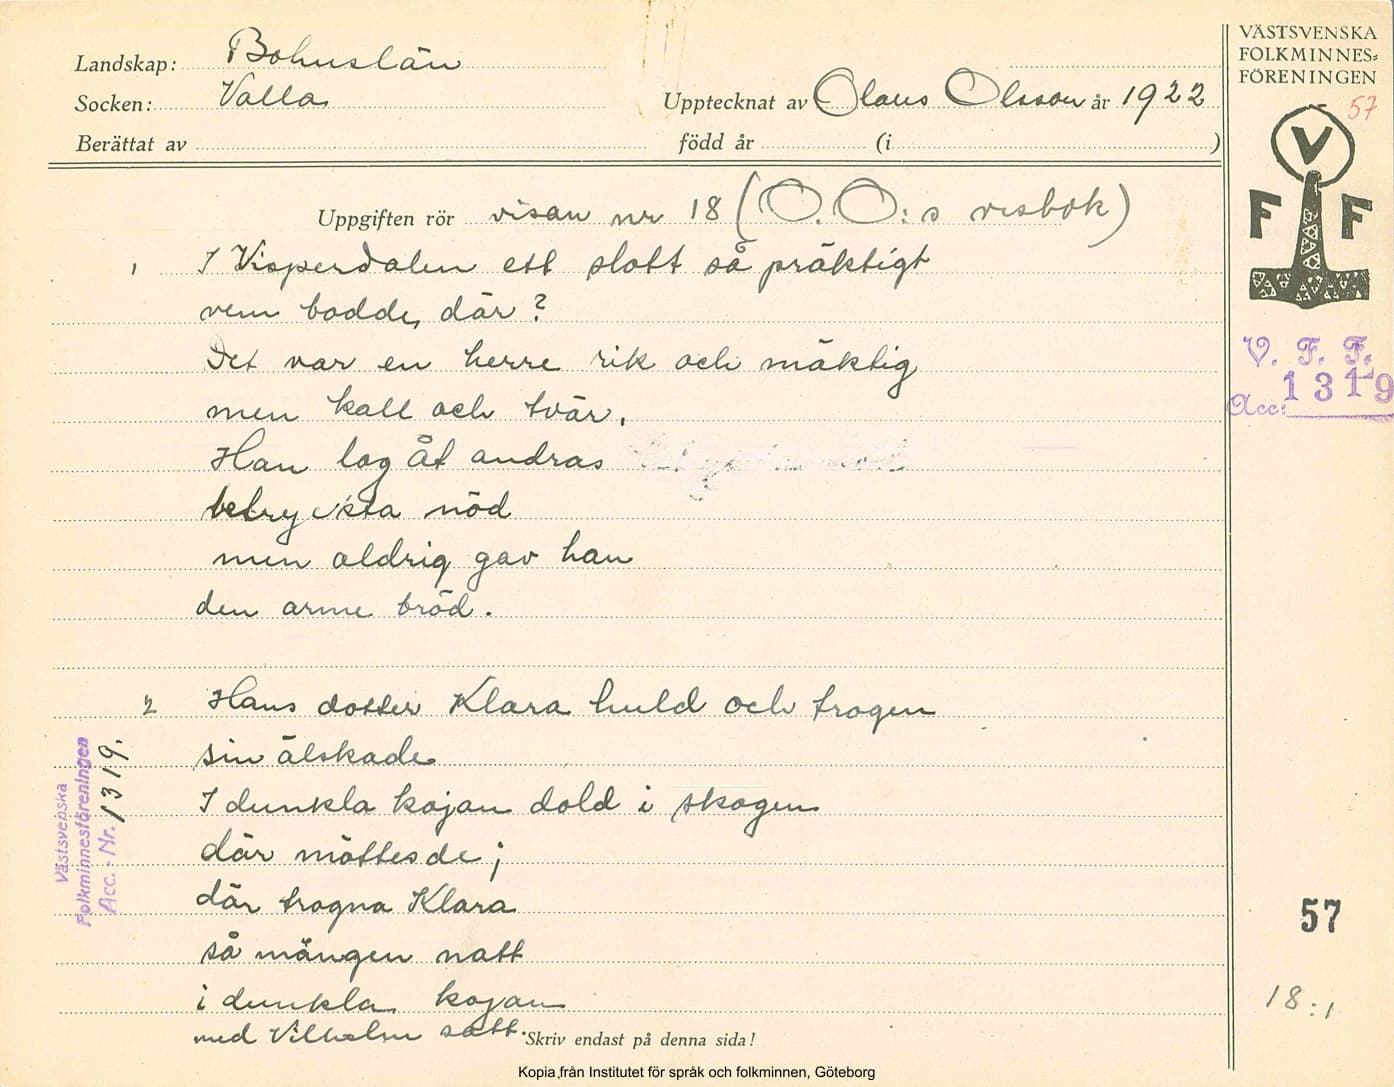 Landskap: Bohuslän
Socken: Valla
Upptecknat av Olaus Olsson år 1922
Berättat av
född år (i )
VÄSTSVENSKA
FOLKMINNES-
FÖRENINGEN
57
V
F F
V. F. F.
Acc: 1319
Uppgiften rör visan nr 18 (O. O:s visbok)
1 I Visperdalen ett slott så präktigt
vem bodde där?
Det var en herre rik och mäktig
men kall och tvär.
Han log åt andras
betryckta nöd
men aldrig gav han
den arme bröd.
2 Hans dotter Klara huld och trogen
sin älskade
I dunkla kojan dold i skogen
där möttes de;
där trogna Klara
så mången natt
i dunkla kojan
med Vilhelm satt.
Skriv endast på denna sida!
Västsvenska
Folkminnesföreningen
Acc. - Nr. 1319.
57
18:1
Kopia från Institutet för språk och folkminnen, Göteborg